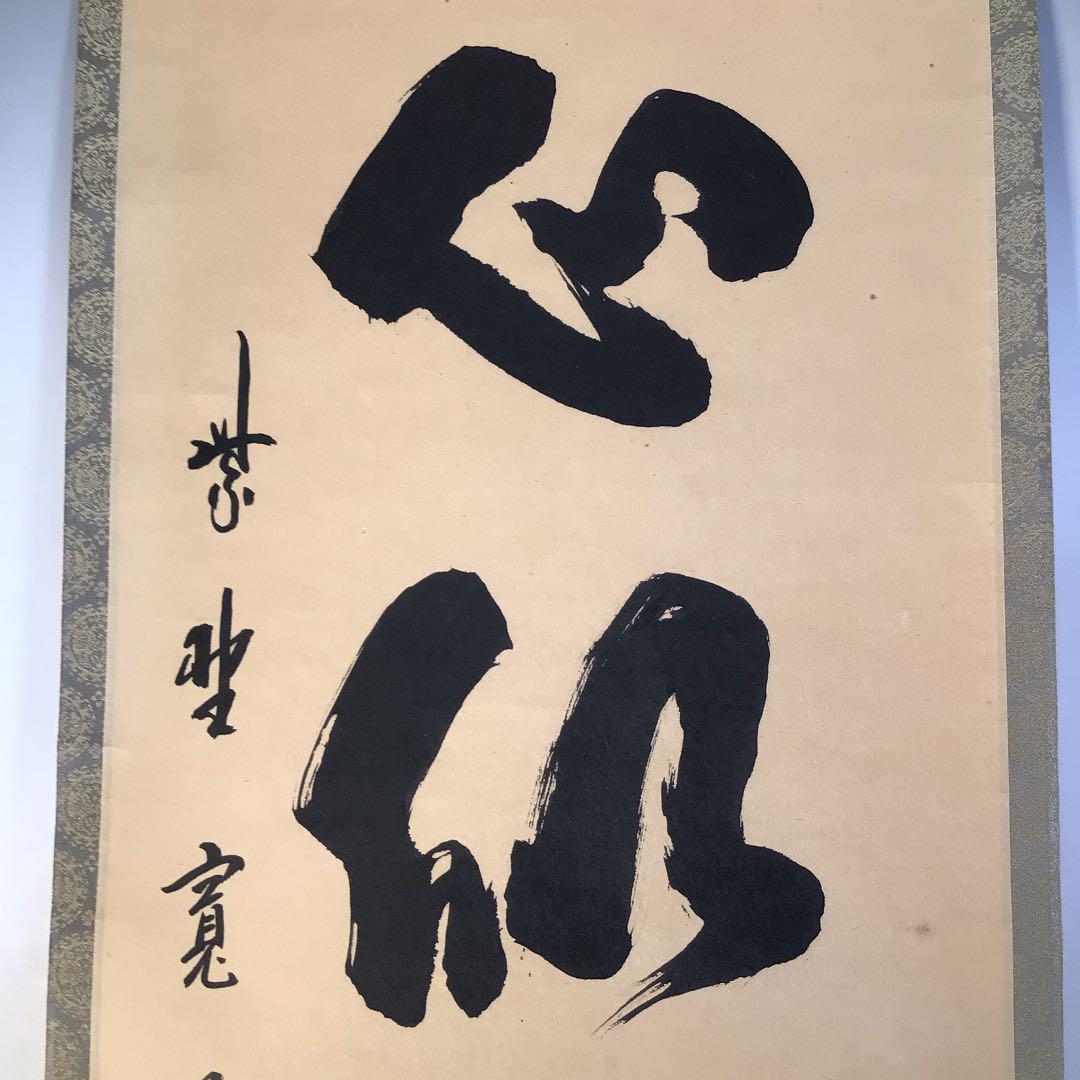 心似
紫野寛